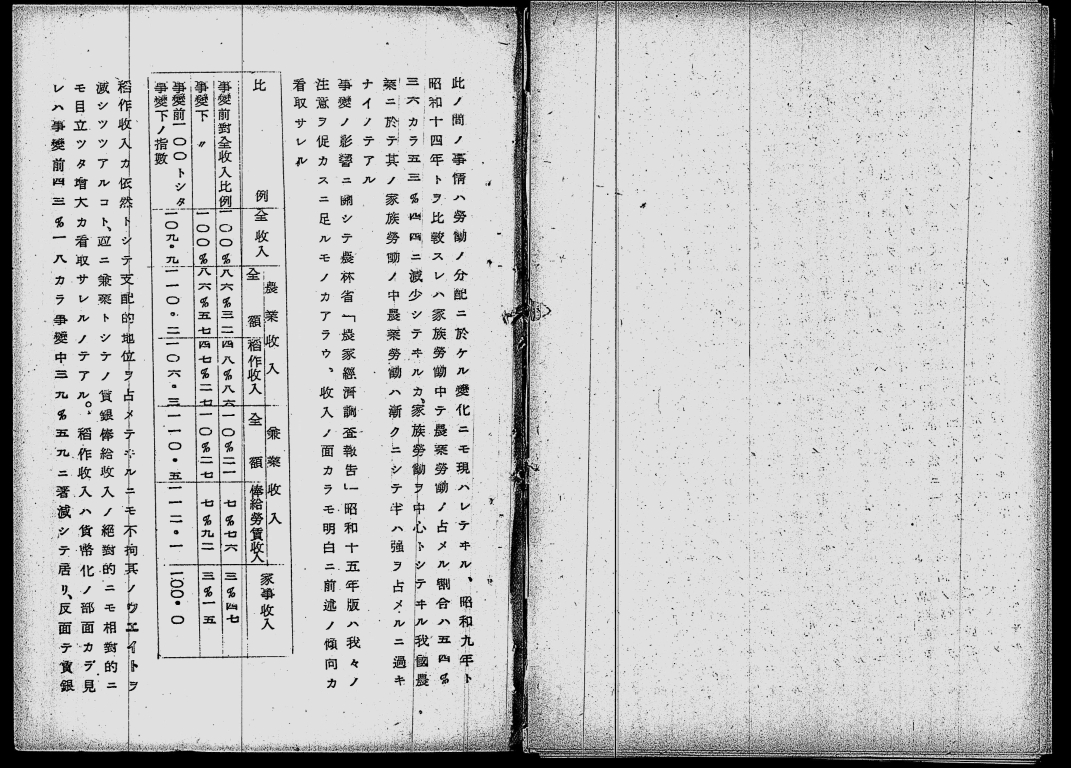 此ノ間ノ事情ハ勞働ノ分配ニ於ケル變化ニモ現ハレテヰル、昭和九年ト
昭和十四年トヲ比較スレハ家族勞働中テ農業勞働ノ占メル割合ハ五四%
三六カラ五三%四四ニ減少シテヰルカ、家族勞働ヲ中心トシテヰル我國農
業ニ於テ其ノ家族勞働ノ中農業勞働ハ漸クニシテ半ハ强ヲ占メルニ過キ
ナイノテアル
事變ノ影響ニ關シテ農林省「農家經濟調査報告」昭和十五年版ハ我々ノ
注意ヲ促カスニ足ルモノカアラウ、收入ノ面カラモ明白ニ前述ノ傾向カ
看取サレル
比例 全收入 農業收入 全額 稻作收入 兼業收入 全額 俸給勞賃收入 家事收入
事變前對全收入比例 一〇〇% 八六%三二 四八%八六 一〇%二一 七%七六 三%四七
事變下 〃 一〇〇% 八六%五七 四七%二七 一〇%二七 七%九二 三%一五
事變前一〇〇トシタ
事變下ノ指數 一〇九・九 一一〇・二 一〇六・三 一一〇・五 一一二・一 一〇〇・〇
稻作收入カ依然トシテ支配的地位ヲ占メテヰルニモ不拘其ノウエイトヲ
減シツツアルコト、竝ニ兼業トシテノ賃銀俸給收入ノ絕對的ニモ相對的ニ
モ目立ツタ增大カ看取サレルノテアル。稻作收入ハ貨幣化ノ部面カデ見
レハ事變前四三%一八カラ事變中三九%五九ニ著減シテ居リ、反面テ賃銀